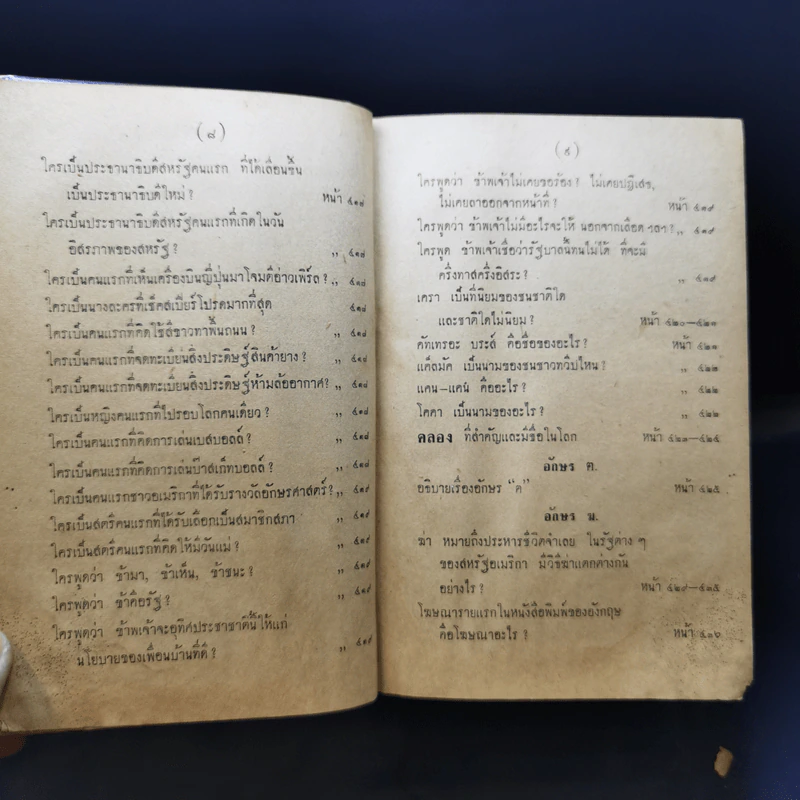 (๘)
ใครเป็นประธานาธิบดีสหรัฐคนแรก ที่ได้เลื่อนขึ้น
เป็นประธานาธิบดีใหม่? หน้า ๔๑๘
ใครเป็นประธานาธิบดีสหรัฐคนแรกที่เกิดในวัน
อิสรภาพของสหรัฐ? ,, ๔๑๘
ใครเป็นคนแรกที่เห็นเครื่องบินญี่ปุ่นมาโจมตีอ่าวเพิร์ล? ,, ๔๑๘
ใครเป็นนางละครที่เช็คสเปียร์โปรดมากที่สุด ,, ๔๑๘
ใครเป็นคนแรกที่คิดใช้สีขาวทาพื้นถนน? ,, ๔๑๘
ใครเป็นคนแรกที่จดทะเบียนสิ่งประดิษฐ์สินค้ายาง? ,, ๔๑๘
ใครเป็นคนแรกที่จดทะเบียนสิ่งประดิษฐ์ห้ามล้ออากาศ? ๔๑๘
ใครเป็นหญิงคนแรกที่ไปรอบโลกคนเดียว? ,, ๔๑๘
ใครเป็นคนแรกที่คิดการเล่นเบสบอลล์? ,, ๔๑๘
ใครเป็นคนแรกที่คิดการเล่นบาสเก็ทบอลล์? ,, ๔๑๘
ใครเป็นคนแรกชาวอเมริกาที่ได้รับรางวัลอักษรศาสตร์? ,, ๔๑๙
ใครเป็นสตรีคนแรกที่ได้รับเลือกเป็นสมาชิกสภา ,, ๔๑๙
ใครเป็นสตรีคนแรกที่คิดให้มีวันแม่? ,, ๔๑๙
ใครพูดว่า ข้ามา, ข้าเห็น, ข้าชนะ? ,, ๔๑๙
ใครพูดว่า ข้าคือรัฐ? ,, ๔๑๙
ใครพูดว่า ข้าพเจ้าจะอุทิศประชาชาตินี้ให้แก่
นโยบายของเพื่อนบ้านที่ดี? ,, ๔๑๙
(๙)
ใครพูดว่า ข้าพเจ้าไม่เคยขอร้อง? ไม่เคยปฏิเสธ,
ไม่เคยลาออกจากหน้าที่? หน้า ๔๑๙
ใครพูดว่า ข้าพเจ้าไม่มีอะไรจะให้ นอกจากเลือด ฯลฯ? ,, ๔๑๙
ใครพูด ข้าพเจ้าเชื่อว่ารัฐบาลนี้ทนไม่ได้ ที่จะมี
ครึ่งทาสครึ่งอิสระ? ,, ๔๑๙
เครา เป็นที่นิยมของชนชาติใด
และชาติใดไม่นิยม? หน้า ๔๒๐—๔๒๑
คัทเทรอะ บระส์ คือชื่อของอะไร? หน้า ๔๒๑
แค็ลมัค เป็นนามของชนชาวทวีปไหน? ,, ๔๒๑
แคน—แคนิ คืออะไร? ,, ๔๒๒
โคคา เป็นนามของอะไร? ,, ๔๒๒
คลอง ที่สำคัญและมีชื่อในโลก หน้า ๔๒๓—๔๒๕
อักษร ฅ.
อธิบายเรื่องอักษร “ฅ” หน้า ๔๒๕
อักษร ฆ.
ฆ่า หมายถึงประหารชีวิตจำเลย ในรัฐต่าง ๆ
ของสหรัฐอเมริกา มีวิธีฆ่าแตกต่างกัน
อย่างไร? หน้า ๔๒๙—๔๓๕
โฆษณารายแรกในหนังสือพิมพ์ของอังกฤษ
คือโฆษณาอะไร? หน้า ๔๓๖